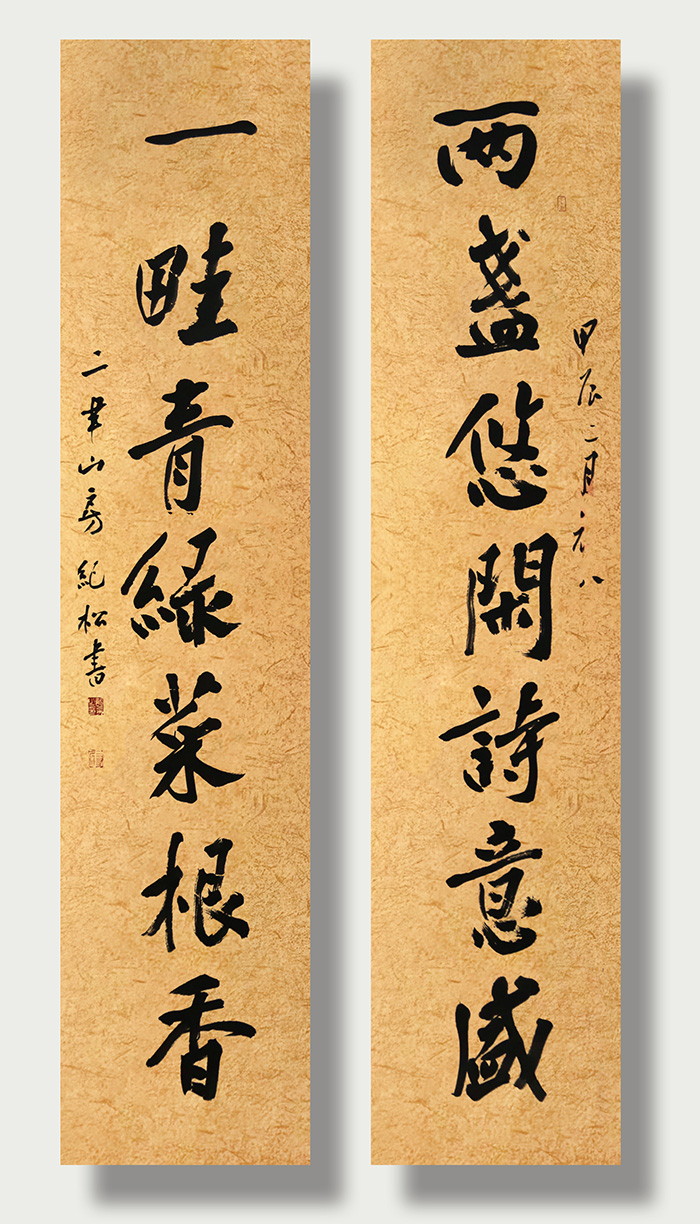 两盞悠閑詩意盛
甲辰二月八
一畦青緑菜根香
二山房紀松書